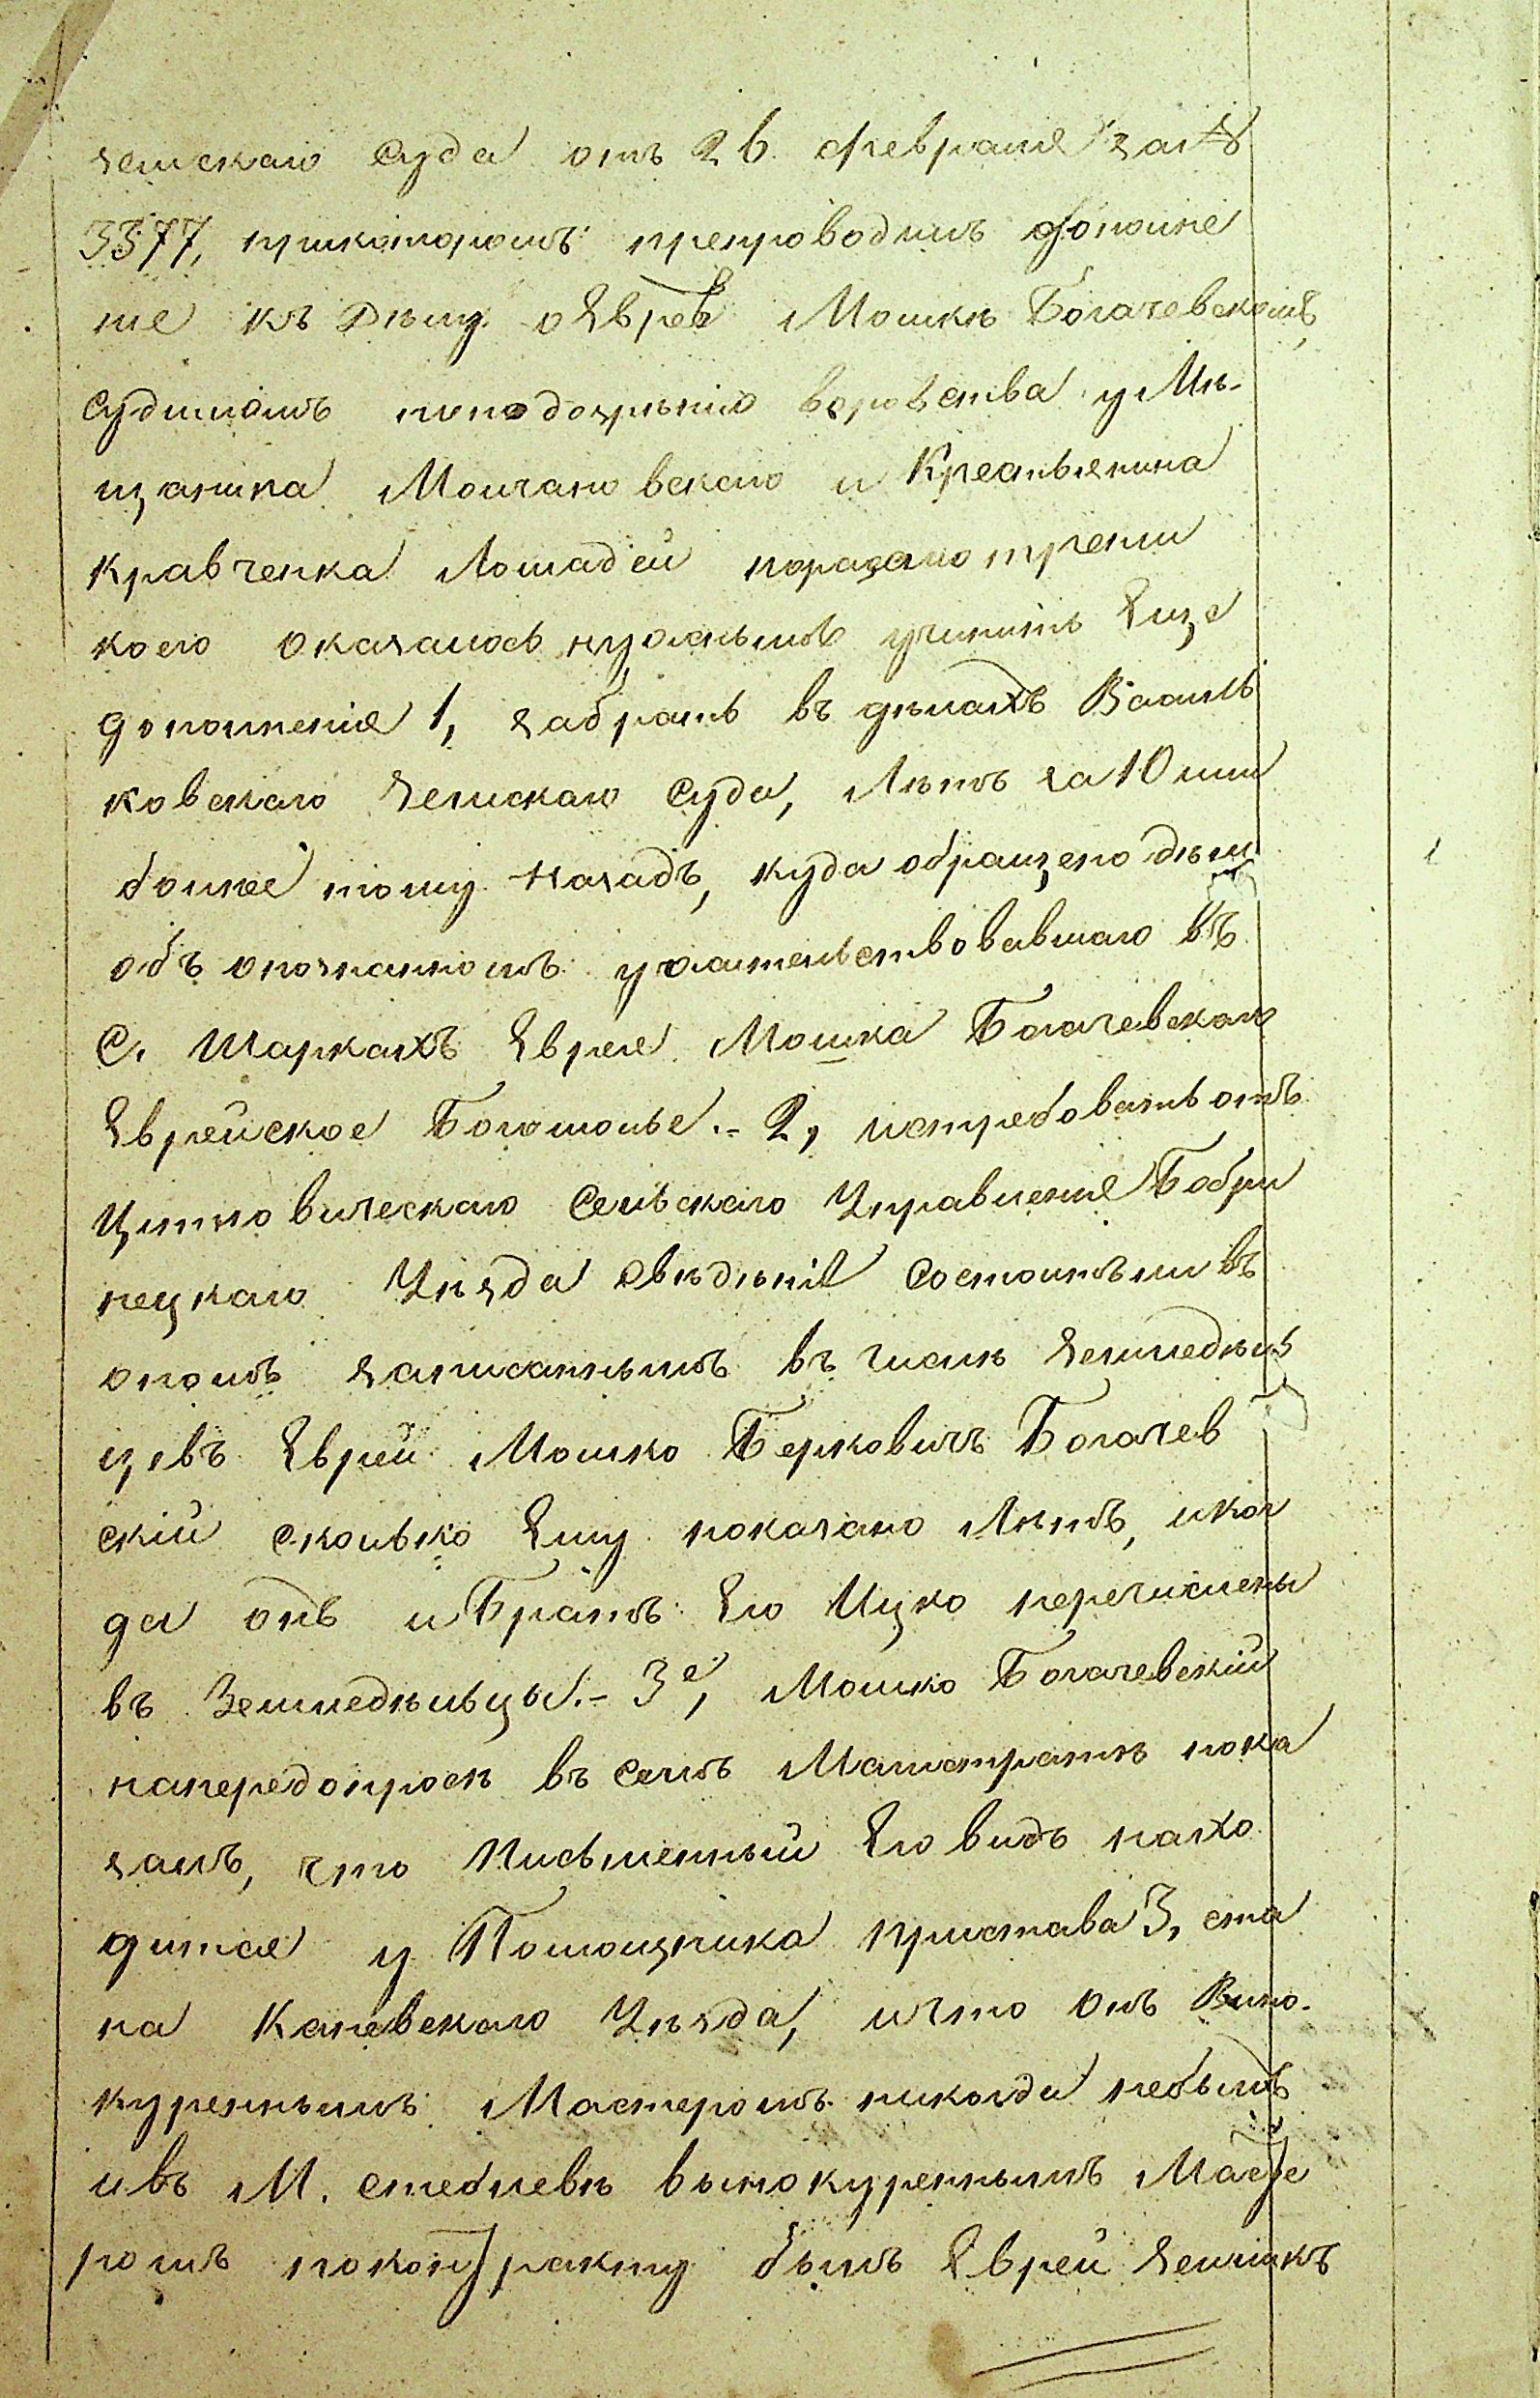 земскаго Суда отъ 26 февраля за №
3377, прикоторомъ препроводилъ дополне
ніе къ дѣлу о Евреѣ Мошкѣ Богачевскомъ,
Судимомъ поподозрѣнію воровства у Мѣ-
щанина Молчановскаго и Крестьянина
Кравченка Лошадей поразсмотреніи
коего оказалось нужнымъ учинить Еще
дополненіе 1, забрать въ дѣлахъ Василь
ковскаго Земскаго Суда, Лѣтъ за 10 или
более тому Назадъ, куда обращено дѣло
объ опознанномъ ужительствовавшаго въ
С. Шаркахъ Еврея Мошка Богачевскаго
Еврейское Богомолье.- 2, истребовать отъ
Сельскаго Управленія Бобри
нецкаго Уѣзда Свѣдѣніе Состоитъ ли въ
ономъ записаннымъ въ числѣ Земледѣль
цевъ Еврей Мошко Берковичъ Богачев
скій сколько Ему показано Лѣтъ, и ког
да онъ и Братъ Его Ицко перечислены
въ Земледѣльцы.- 3е, Мошко Богачевскій
напередопросѣ въ Семъ Магистратѣ пока
залъ, что Письменный Его видъ нахо
дится у Помощника пристава 3, ста
на Каневскаго Уѣзда, и что онъ Вино-
куреннымъ Мастеромъ никогда небылъ
ивъ М. Стеблевѣ вынокуреннымъ Масте
ромъ поконтракту былъ Еврей